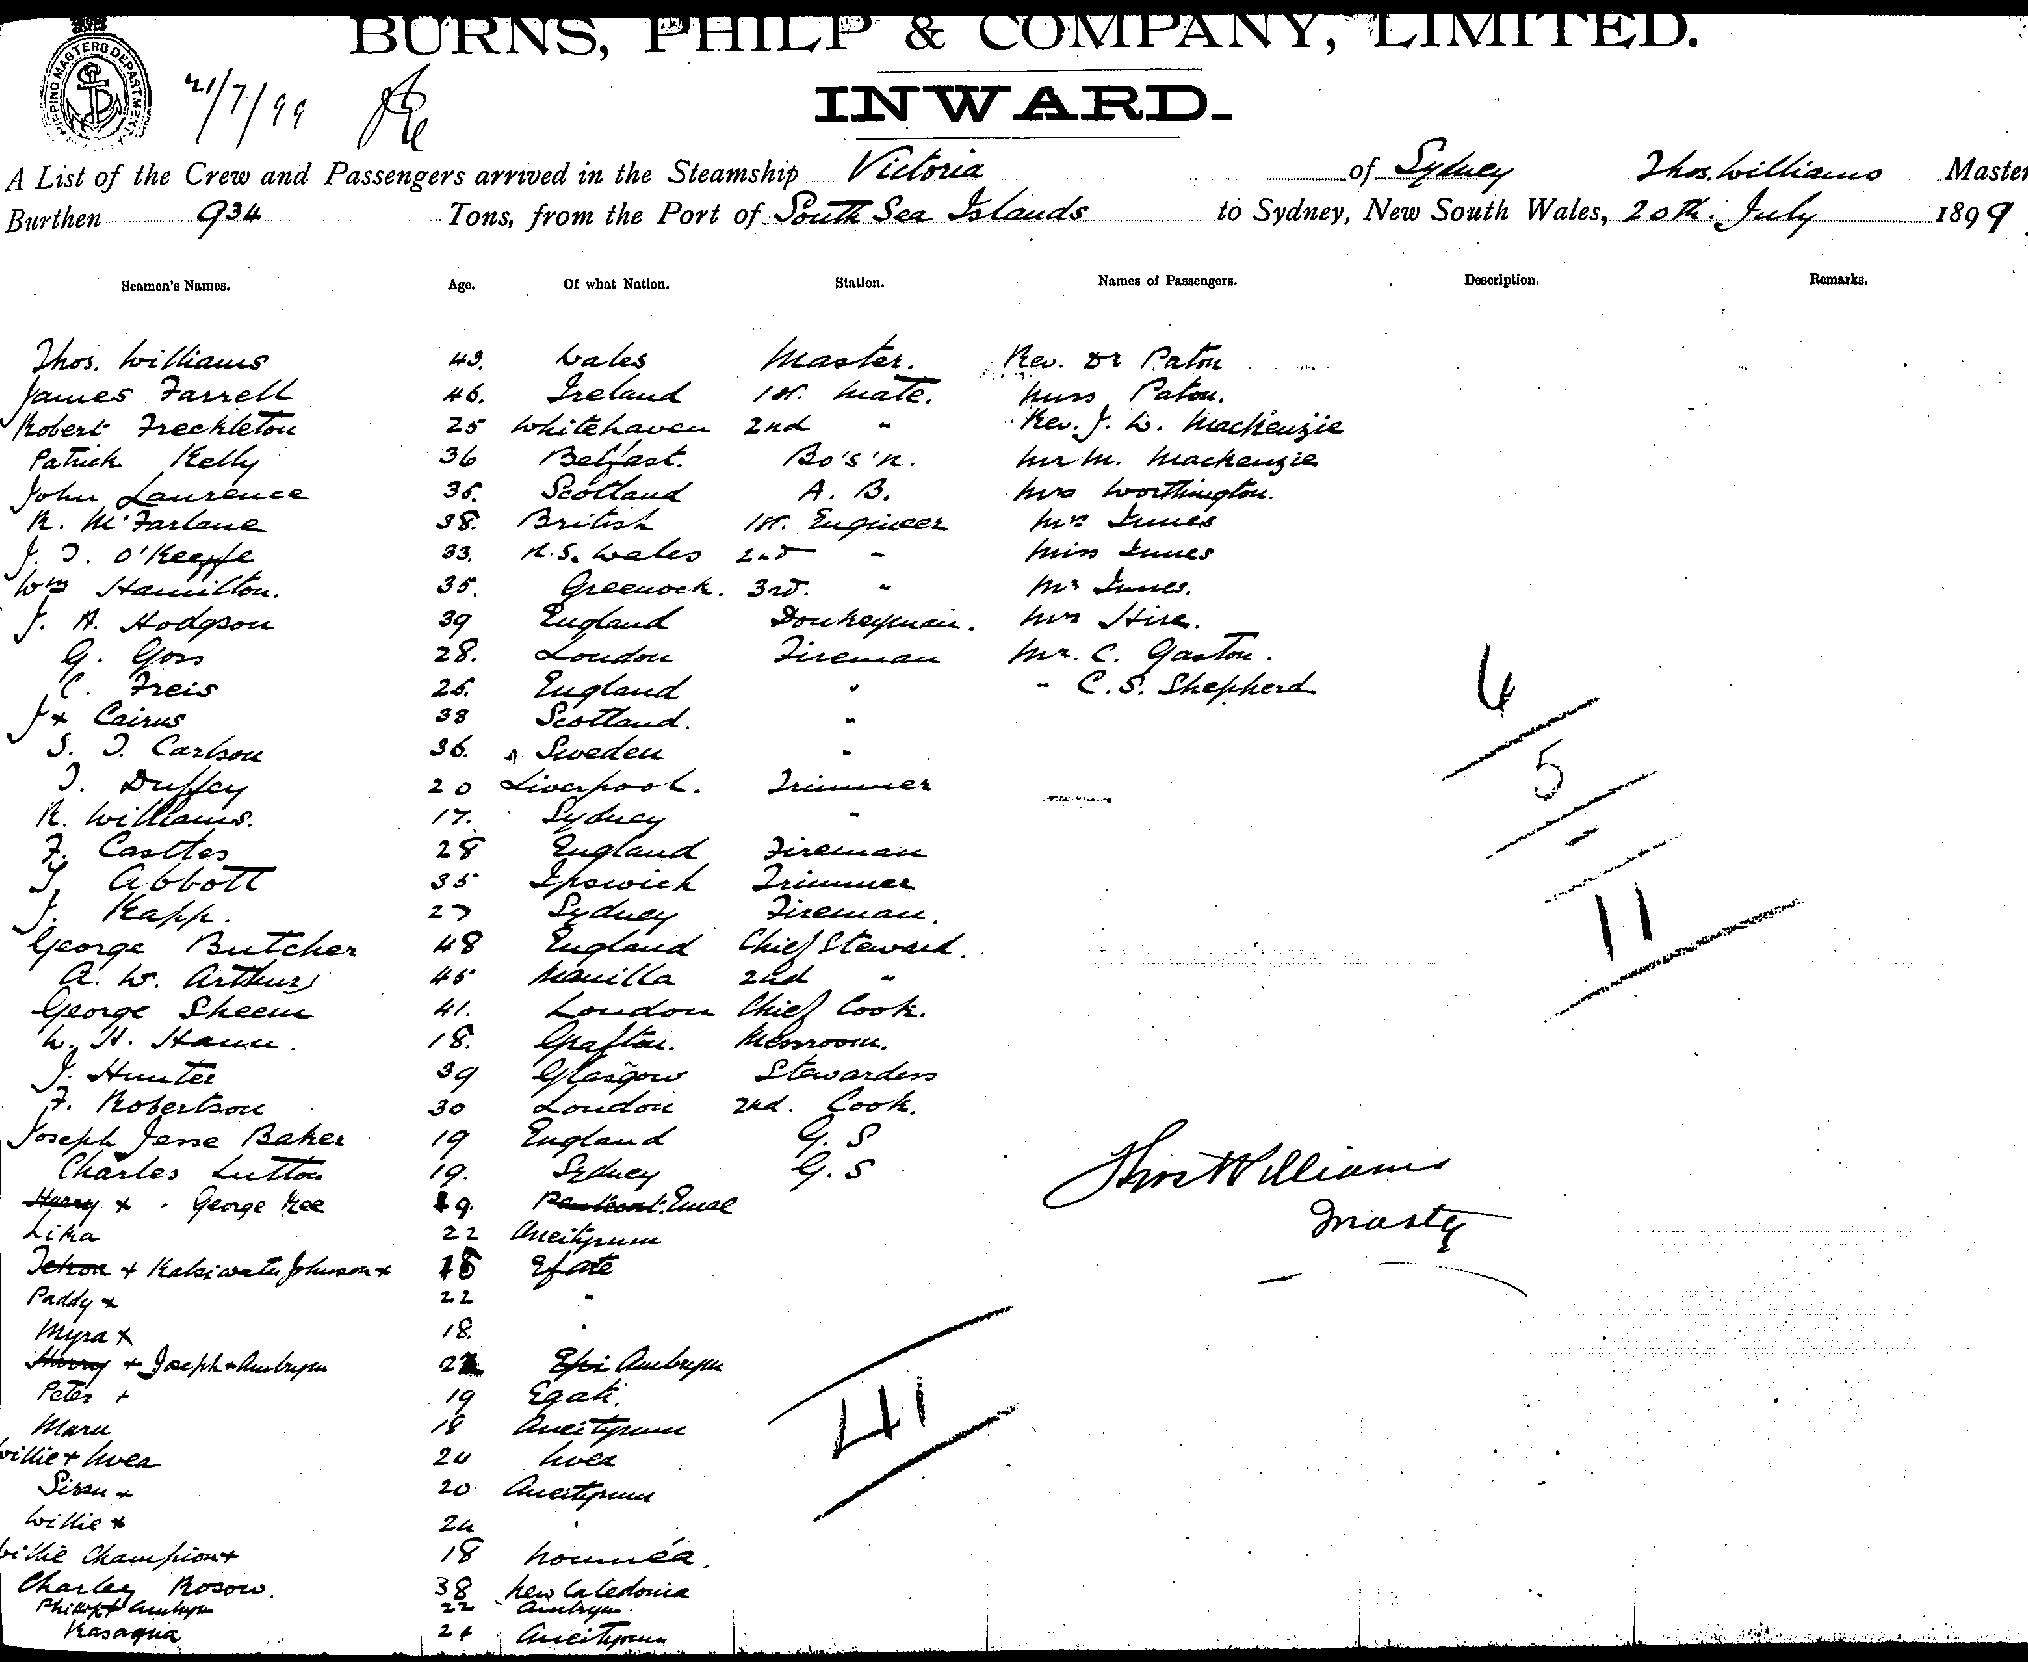 BURNS, PHILP & COMPANY, LIMITED.
SHIPPING MASTERS DEPARTMENT
21/7/99
INWARD.
A List of the Crew and Passengers arrived in the Steamship Victoria of Sydney Thos. Williams Master
Burthen 934 Tons, from the Port of South Sea Islands to Sydney, New South Wales, 20th July 1899
Seamen's Names. Age. Of what Nation. Station. Names of Passengers. Description. Remarks.
Thos. Williams 43. Wales Master. Rev. Dr Paton
James Farrell 46. Ireland 1st. Mate. Miss Paton.
Robert Freckleton 25 Whitehaven 2nd " Rev. J. W. Mackenzie
Patrick Kelly 36 Belfast. Bo's'n. Mr M. Mackenzie
John Laurence 35. Scotland A. B. Mrs Worthington.
R. McFarlane 38. British 1st. Engineer Mrs Innes
J. T. O'Keeffe 33. N.S. Wales 2nd " Miss Innes
Wm Hamilton. 35. Greenock. 3rd. " Mr Innes.
J. A. Hodgson 39 England Donkeyman. Mrs Hire.
G. Goss 28. London Fireman Mr. C. Gaston.
C. Freis 25. England " " C. S. Shepherd
J Cairns 38 Scotland. "
S. T. Carlson 36. Sweden "
T. Duffey 20 Liverpool. Trimmer
R. Williams. 17. Sydney "
F. Castles 28 England Fireman
T. Abbott 35 Ipswich Trimmer
J. Kapp. 27 Sydney Fireman.
George Butcher 48 England Chief Steward.
A. W. Arthurs 45 Manilla 2nd "
George Sheem 41. London Chief Cook.
W. H. Hann. 18. Grafton. Messroom.
J. Hunter 39 Glasgow Stewardess
F. Robertson 30 London 2nd. Cook.
Joseph Jesse Baker 19 England G. S
Charles Lutton 19. Sydney G. S
Harry x George Kee 19. Emae
Lika 22 Aneityum
x Johnson x 18 Efate
Paddy x 22 "
Myra x 18. "
Harry x Joseph x Ambrym 22 Epi Ambrym
Peter x 19 Egati.
Maru 18 Aneityum
Willie x Uvea 24 Uvea
Sirsu x 20 Aneityum
Willie x 24 "
Willie Champion x 18 Nouméa.
Charley Rosow. 38 New Caledonia
Philip x Ambrym 22 Ambrym
Kasaqua 24 Aneityum
6
5
-
11
Thos Williams
Master
41